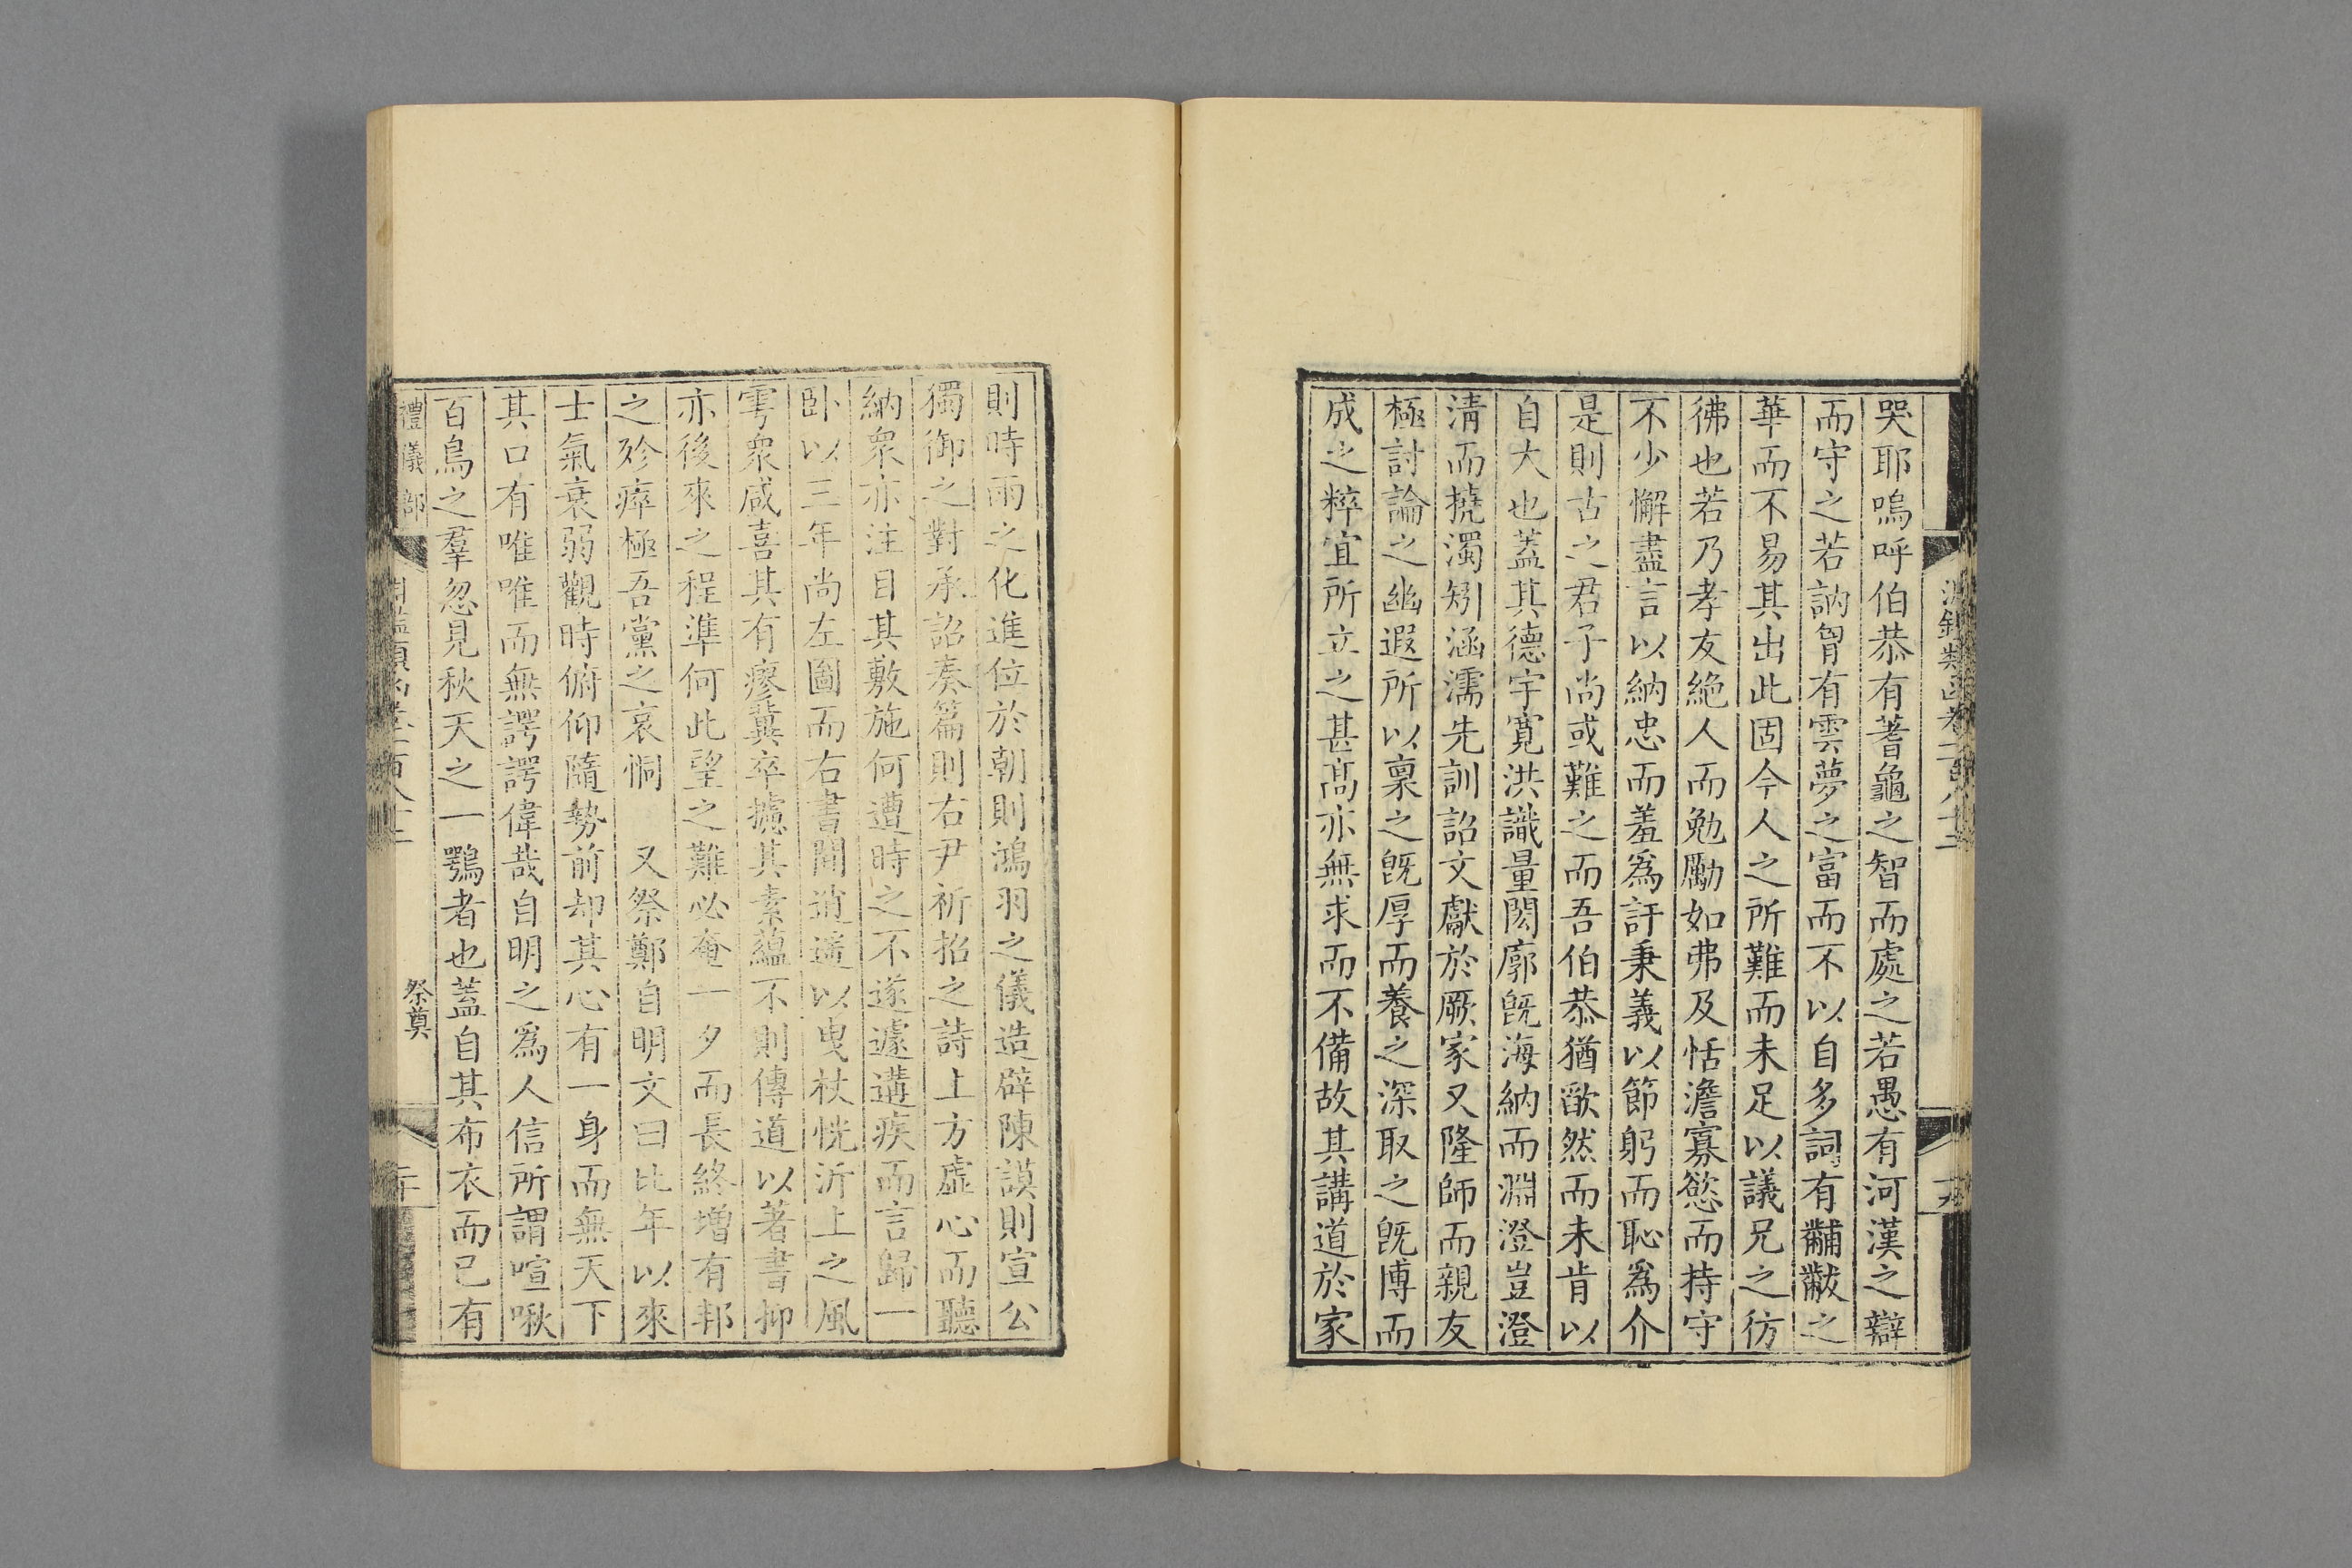 哭耶嗚呼伯恭有蓍龜之智而處之若愚有河漢之辯
而守之若訥胷有雲夢之富而不以自多詞有黼黻之
華而不易其出此固今人之所難而未足以議兄之彷
彿也若乃孝友絶人而勉勵如弗及恬澹寡慾而持守
不少懈盡言以納忠而羞爲訐秉義以節躬而恥爲介
是則古之君子尚或難之而吾伯恭猶歉然而未肯以
自大也蓋其德宇寛洪識量閎廓旣海納而淵澄豈澄
淸而撓濁矧涵濡先訓詔文獻於厥家又隆師而親友
極討論之幽遐所以稟之旣厚而養之深取之旣博而
成之粹宜所立之甚髙亦無求而不備故其講道於家
則時雨之化進位於朝則鴻羽之儀造辟陳謨則宣公
獨御之對承詔奏篇則右尹祈招之詩上方虛心而聽
納衆亦注目其敷施何遭時之不遂遽遘疾而言歸一
卧以三年尚左圖而右書閒逍遥以曳杖恍沂上之風
雩衆咸喜其有瘳冀卒攄其素藴不則傳道以著書抑
亦後來之程準何此望之難必奄一夕而長終增有邦
之殄瘁極吾黨之哀恫　又祭鄭自明文曰比年以來
士氣衰弱觀時俯仰隨勢前却其心有一身而無天下
其口有唯唯而無諤諤偉哉自明之爲人信所謂喧啾
百鳥之羣忽見秋天之一鶚者也蓋自其布衣而已有
禮儀部
祭奠